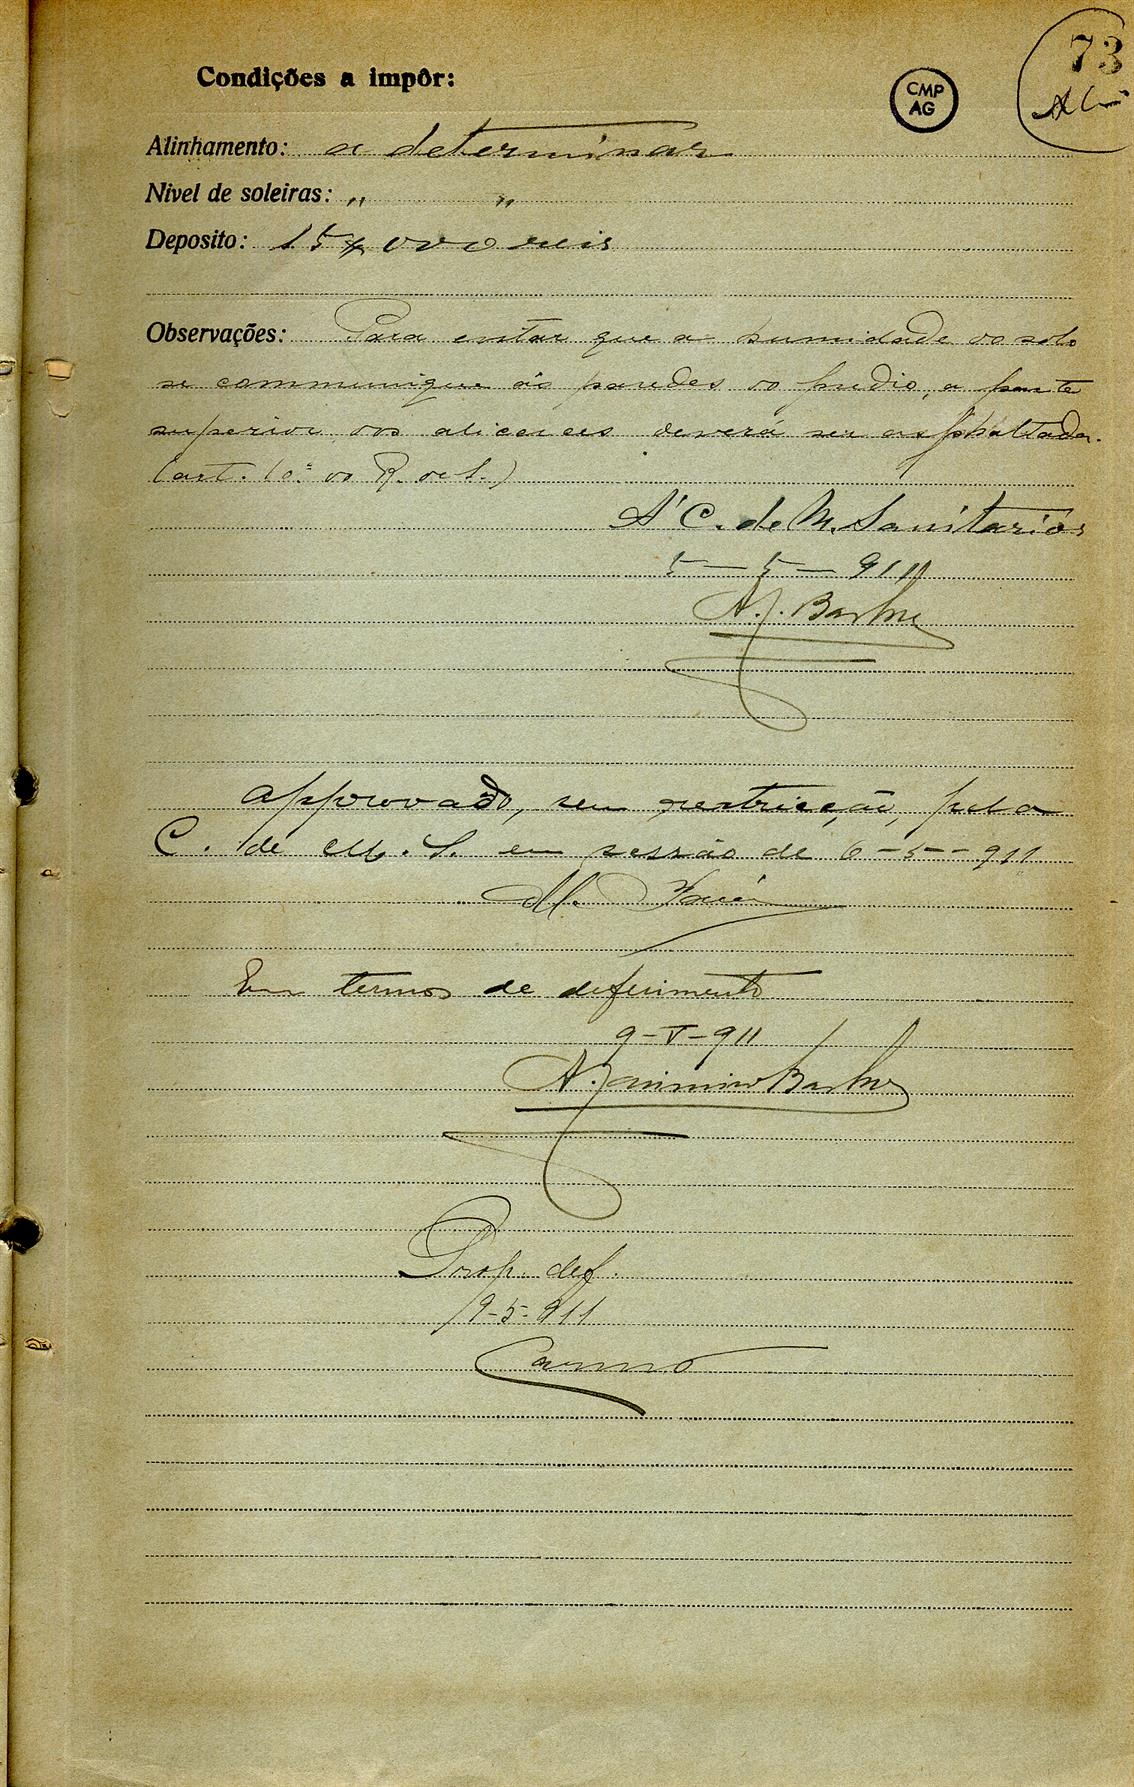 73
CMP
AG
Condições a impôr:
Alinhamento: a determinar
Nivel de soleiras: " "
Deposito: 15$000 reis
Observações: Para evitar que a humidade do solo
se communique ás paredes do predio, a parte
superior dos alicerces deverá ser asphaltada.
(art. 10.º do R. de S.)
Á C. de M. Sanitarios
5-5-911
A. J. Barbosa
Approvado, sem restricção, pela
C. de M. S. em sessão de 6-5-911
M.
Em termos de deferimento
9-V-911
A. Barbosa
Prop. def.
19-5-911